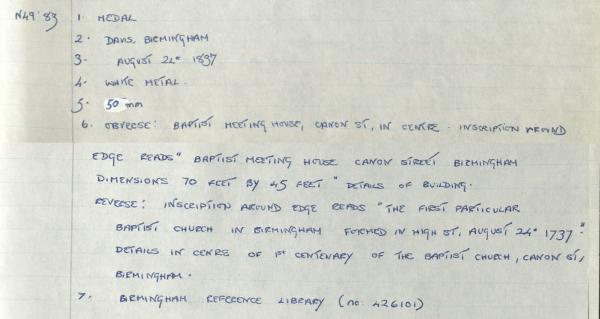 N49'83 1. MEDAL
2. DAVIS, BIRMINGHAM
3. AUGUST 24th 1837
4. WHITE METAL.
5. 50 mm
6. OBVERSE: BAPTIST MEETING HOUSE, CANON ST, IN CENTRE. INSCRIPTION AROUND
EDGE READS "BAPTIST MEETING HOUSE CANON STREET BIRMINGHAM
DIMENSIONS 70 FEET BY 45 FEET" DETAILS OF BUILDING.
REVERSE: INSCRIPTION AROUND EDGE READS "THE FIRST PARTICULAR
BAPTIST CHURCH IN BIRMINGHAM FORMED IN HIGH ST. AUGUST 24th 1737".
DETAILS IN CENRE OF 1st CENTENARY OF THE BAPTIST CHURCH, CANON ST,
BIRMINGHAM.
7. BIRMINGHAM REFERENCE LIBRARY (no. 426101)